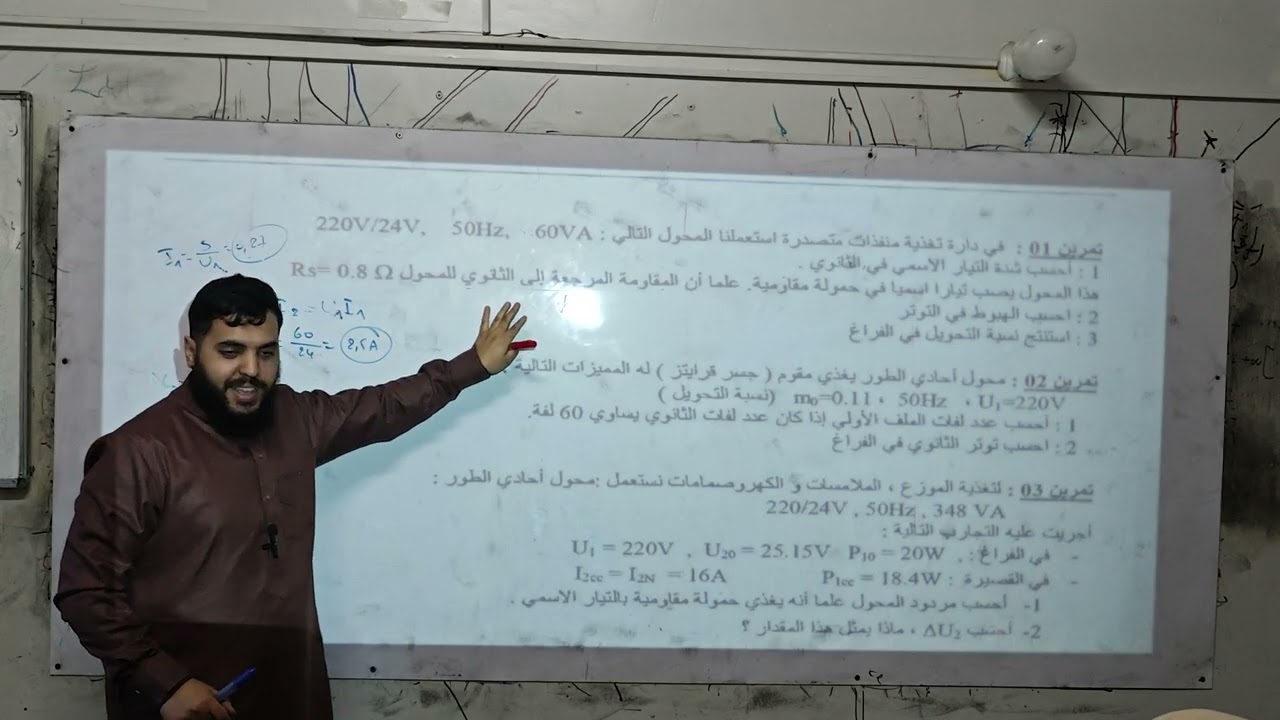 تمرين 01 : في دارة تغذية منفذات متصدرة استعملنا المحول التالي : 220V/24V, 50Hz, 60VA
1 : أحسب شدة التيار الاسمي في الثانوي .
هذا المحول يصب تيارا اسميا في حمولة مقاومية. علما أن المقاومة المرجعة إلى الثانوي للمحول Rs= 0.8 Ω
2 : احسب الهبوط في التوتر
3 : استنتج نسبة التحويل في الفراغ
تمرين 02 : محول أحادي الطور يغذي مقوم ( جسر قرايتز ) له المميزات التالية :
U₁=220V ، 50Hz ، m₀=0.11 (نسبة التحويل )
1 : أحسب عدد لفات الملف الأولي إذا كان عدد لفات الثانوي يساوي 60 لفة.
2 : احسب توتر الثانوي في الفراغ
تمرين 03 : لتغذية الموزع ، الملامسات و الكهروصمامات نستعمل :محول أحادي الطور :
220/24V , 50Hz , 348 VA
أجريت عليه التجارب التالية :
- في الفراغ : , U₁ = 220V , U₂₀ = 25.15V P₁₀ = 20W
- في القصيرة : P₁cc = 18.4W I₂cc = I₂N = 16A
1- أحسب مردود المحول علما أنه يغذي حمولة مقاومية بالتيار الاسمي .
2- أحسب ΔU₂ ، ماذا يمثل هذا المقدار ؟
I₁ = S/U₁ = 0,27
₂ = U₁I₁
60/24 = 2,5A